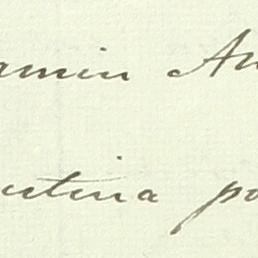 amin An
ntina po